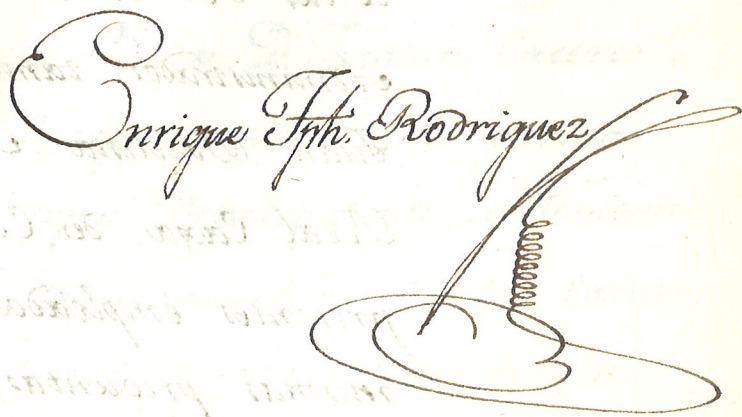 Enrique Jph. Rodriguez